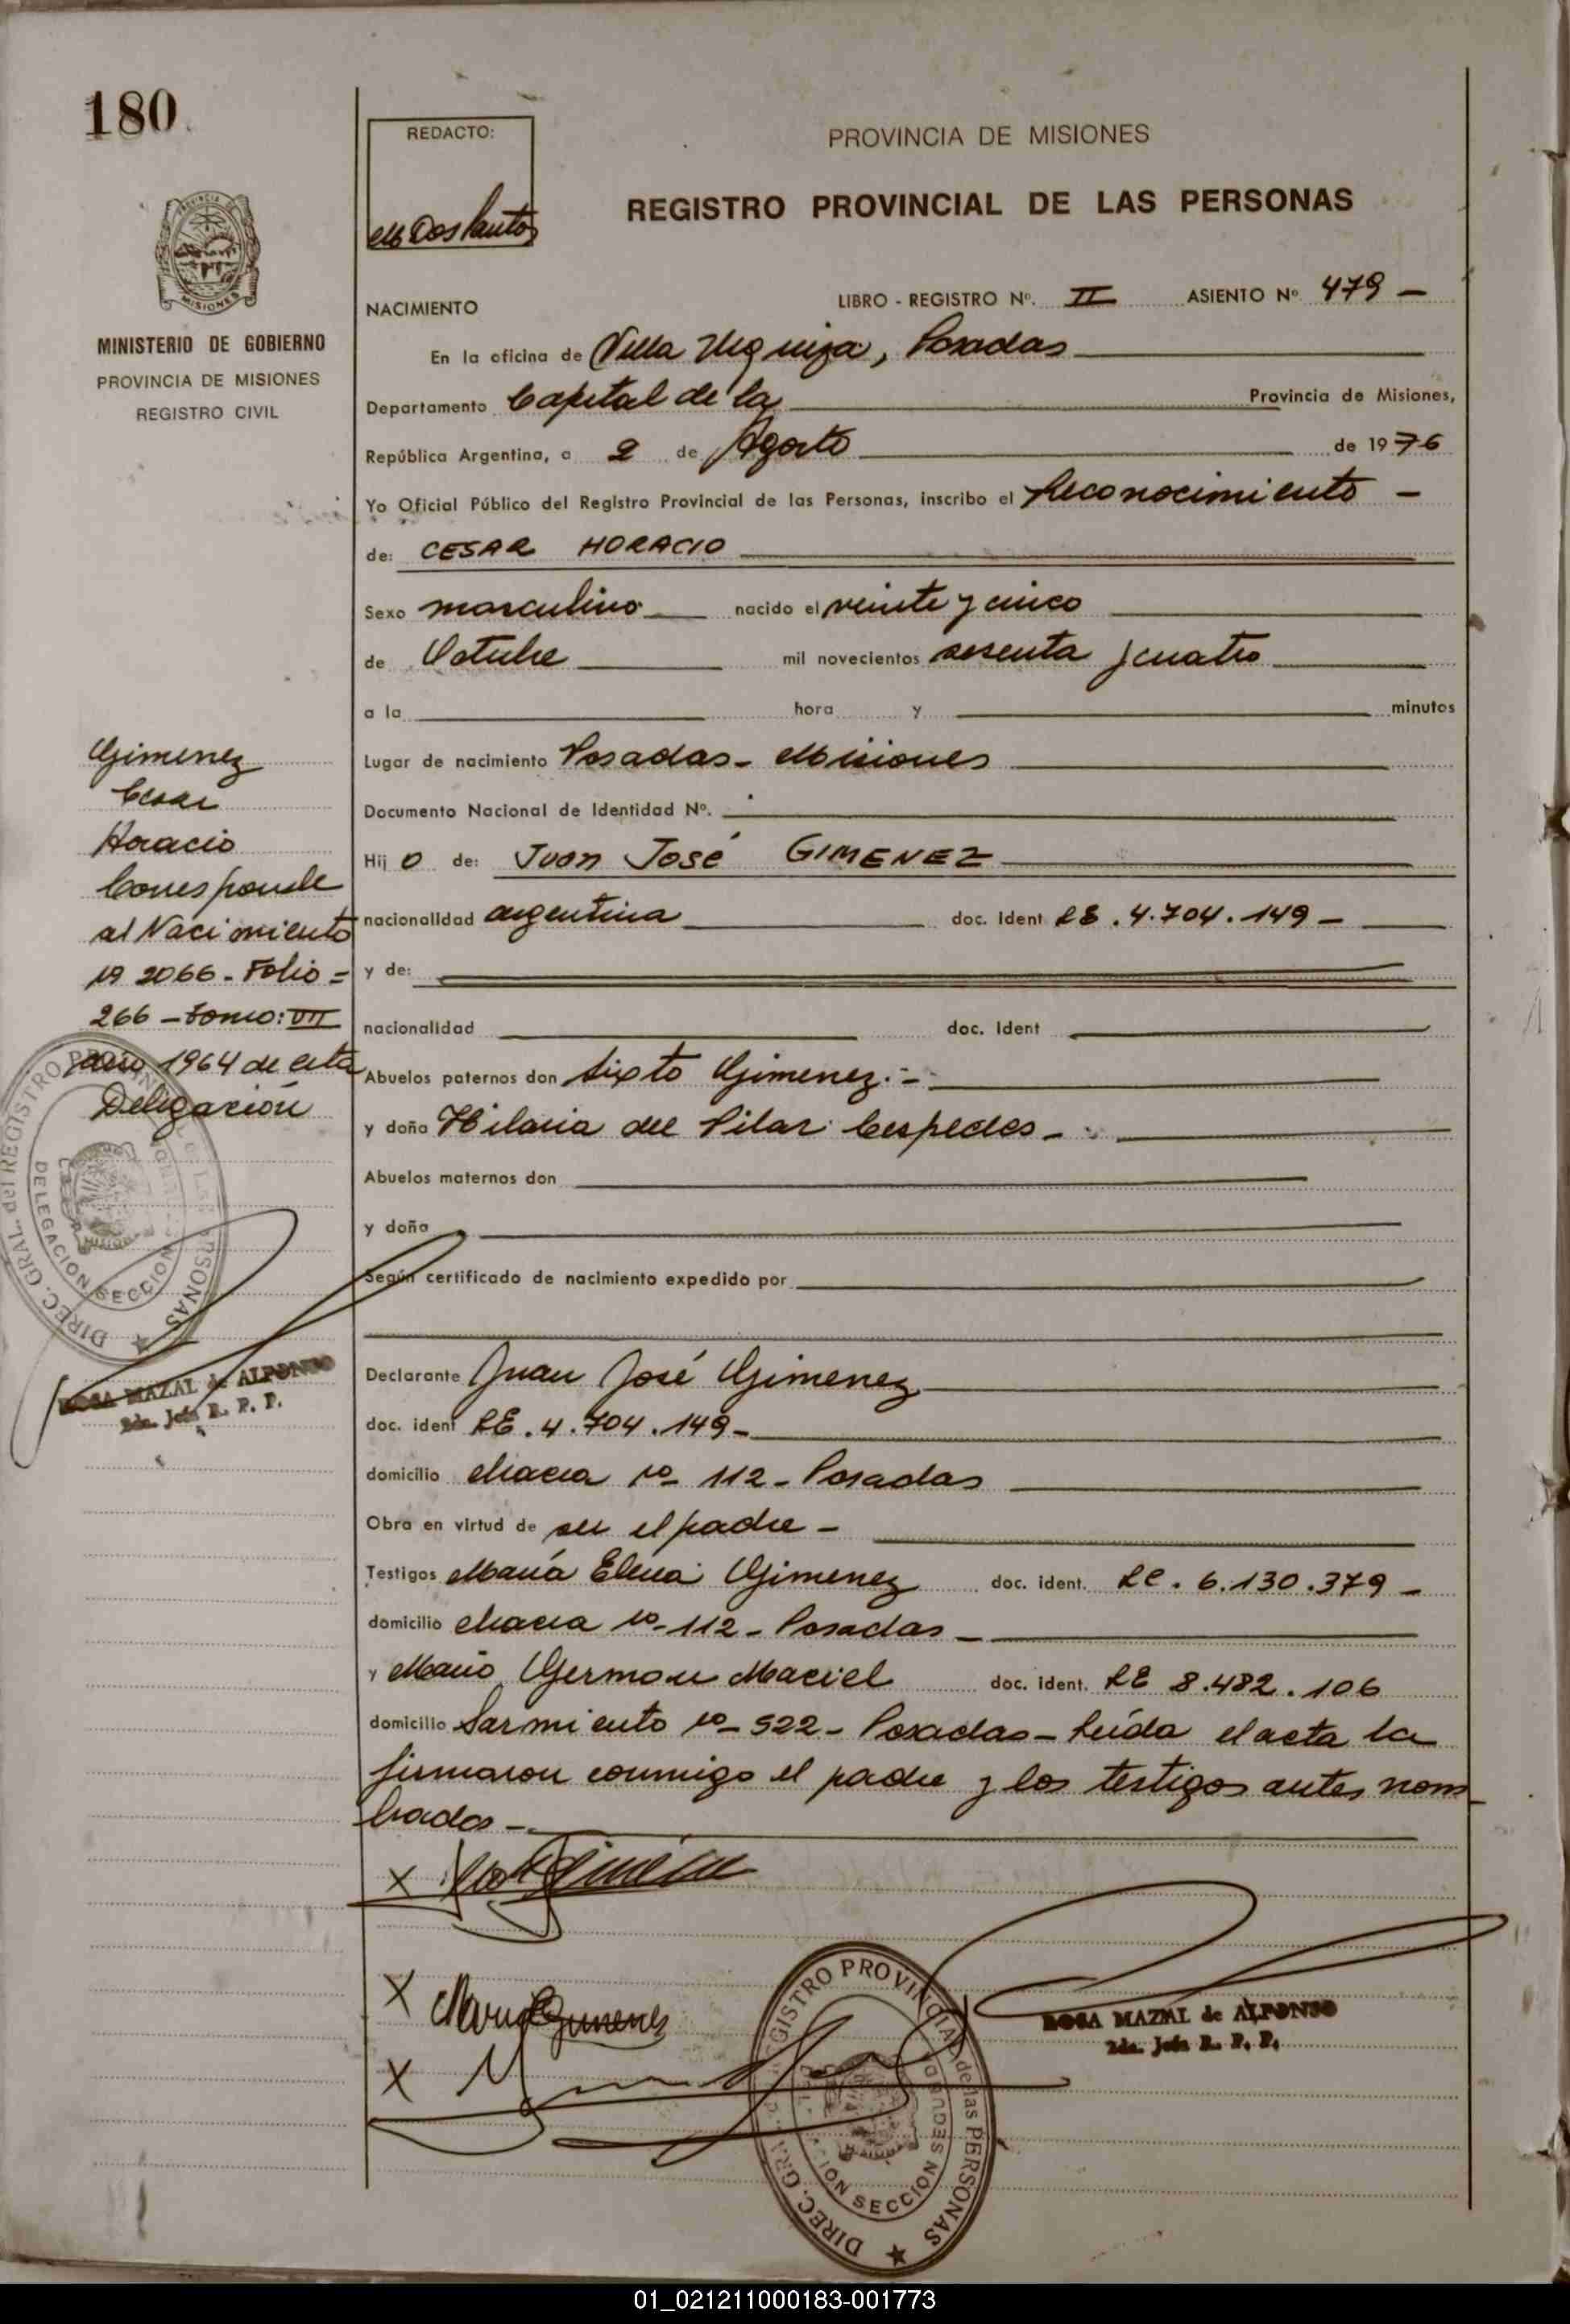 180
REDACTO:
PROVINCIA DE MISIONES
REGISTRO PROVINCIAL DE LAS PERSONAS
PROVINCIA DE
MISIONES
MINISTERIO DE GOBIERNO
PROVINCIA DE MISIONES
REGISTRO CIVIL
NACIMIENTO
LIBRO - REGISTRO Nº. II ASIENTO Nº 479 -
En la oficina de Villa Urquiza, Posadas
Departamento Capital de la Provincia de Misiones,
República Argentina, a 2 de Agosto de 1976
Yo Oficial Público del Registro Provincial de las Personas, inscribo el Reconocimiento -
de: CESAR HORACIO
Sexo masculino nacido el veinte y cinco
de Octubre mil novecientos sesenta y cuatro
a la hora y minutos
Lugar de nacimiento Posadas - Misiones
Documento Nacional de Identidad Nº.
Hij o de: Juan José GIMENEZ
nacionalidad argentina doc. Ident LE. 4.704.149 -
y de:
nacionalidad doc. Ident
Abuelos paternos don Sixto Gimenez. -
y doña Hilaria del Pilar Cespedes -
Abuelos maternos don
y doña
Según certificado de nacimiento expedido por
Declarante Juan José Gimenez
doc. ident LE. 4.704.149 -
domicilio Chacra Nº 112 - Posadas
Obra en virtud de ser el padre -
Testigos María Elena Gimenez doc. ident. LC. 6.130.379 -
domicilio Chacra Nº 112 - Posadas -
y Mario German Maciel doc. ident. LE 8.482.106
domicilio Sarmiento Nº 522 - Posadas - Leída el acta la
firmaron conmigo el padre y los testigos antes nom
brados -
Gimenez
Cesar
Horacio
Corresponde
al Nacimiento
Nº 2066 - Folio =
266 - tomo: VII
año 1964 de esta
Delegación
DIREC. GRAL. del REGISTRO PROVINCIAL de las PERSONAS
DELEGACION SECCION
MISIONES
ROSA MAZAL de ALFONSO
2da. Jefa R. P. P.
X
X Maria E Gimenez
X
DIREC. GRAL. REGISTRO PROVINCIAL de las PERSONAS
SECCION SEGUNDA
ROSA MAZAL de ALFONSO
2da. Jefa R. P. P.
01_021211000183-001773